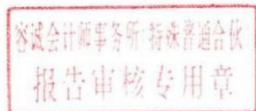 容诚会计师事务所 特殊普通合伙
报告审核专用章